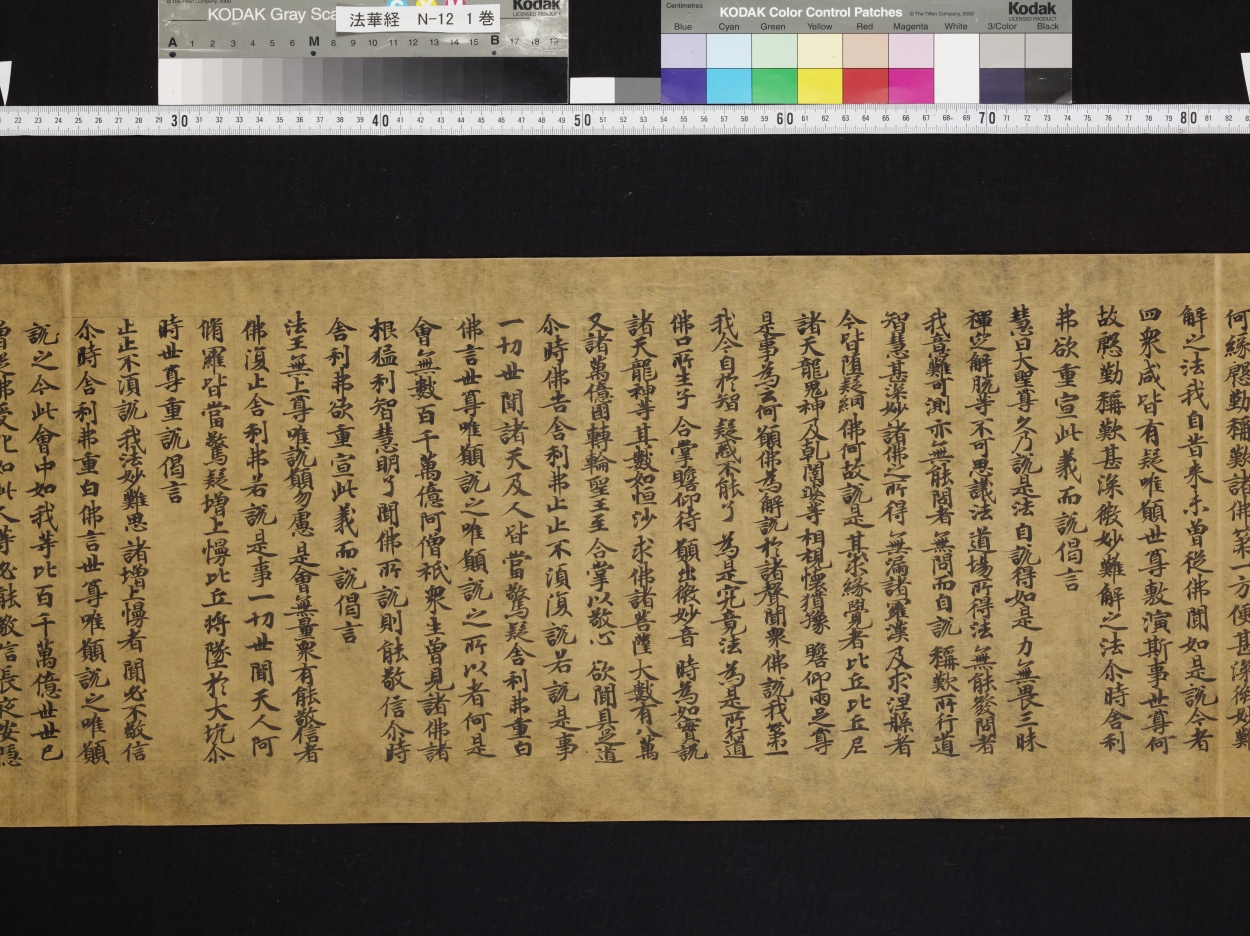 KODAK Gray Sca
法華経 N-12 1巻
Kodak
LICENSED PRODUCT
A 1 2 3 4 5 6 M 8 9 10 11 12 13 14 15 B 17 18 19
Centimetres
KODAK Color Control Patches
© The Tiffen Company, 2000
Kodak
LICENSED PRODUCT
Blue Cyan Green Yellow Red Magenta White 3/Color Black
22 23 24 25 26 27 28 29 30 31 32 33 34 35 36 37 38 39 40 41 42 43 44 45 46 47 48 49 50 51 52 53 54 55 56 57 58 59 60 61 62 63 64 65 66 67 68 69 70 71 72 73 74 75 76 77 78 79 80 81 82
何緣慇勤稱歎諸佛第一方便甚深微妙難
解之法我自昔來未曾從佛聞如是說今者
四衆咸皆有疑唯願世尊敷演斯事世尊何
故慇勤稱歎甚深微妙難解之法尒時舍利
弗欲重宣此義而說偈言
慧日大聖尊 久乃說是法 自說得如是 力無畏三昧
禪定解脫等 不可思議法 道場所得法 無能發問者
我意難可測 亦無能問者 無問而自說 稱歎所行道
智慧甚深妙 諸佛之所得 無漏諸羅漢 及求涅槃者
今皆墮疑網 佛何故說是 其求緣覺者 比丘比丘尼
諸天龍鬼神 及乾闥婆等 相視懷猶豫 瞻仰兩足尊
是事為云何 願佛為解說 於諸聲聞衆 佛說我第一
我今自於智 疑惑不能了 為是究竟法 為是所行道
佛口所生子 合掌瞻仰待 願出微妙音 時為如實說
諸天龍神等 其數如恒沙 求佛諸菩薩 大數有八萬
又諸萬億國 轉輪聖王至 合掌以敬心 欲聞具足道
尒時佛告舍利弗止止不須復說若說是事
一切世間諸天及人皆當驚疑舍利弗重白
佛言世尊唯願說之唯願說之所以者何是
會無數百千萬億阿僧祇衆生曾見諸佛諸
根猛利智慧明了聞佛所說則能敬信尒時
舍利弗欲重宣此義而說偈言
法王無上尊 唯說願勿慮 是會無量衆 有能敬信者
佛復止舍利弗若說是事一切世間天人阿
脩羅皆當驚疑增上慢比丘將墜於大坑尒
時世尊重說偈言
止止不須說 我法妙難思 諸增上慢者 聞必不敬信
尒時舍利弗重白佛言世尊唯願說之唯願
說之今此會中如我等比百千萬億世世已
曾從佛受化如此人等必能敬信長夜安隱